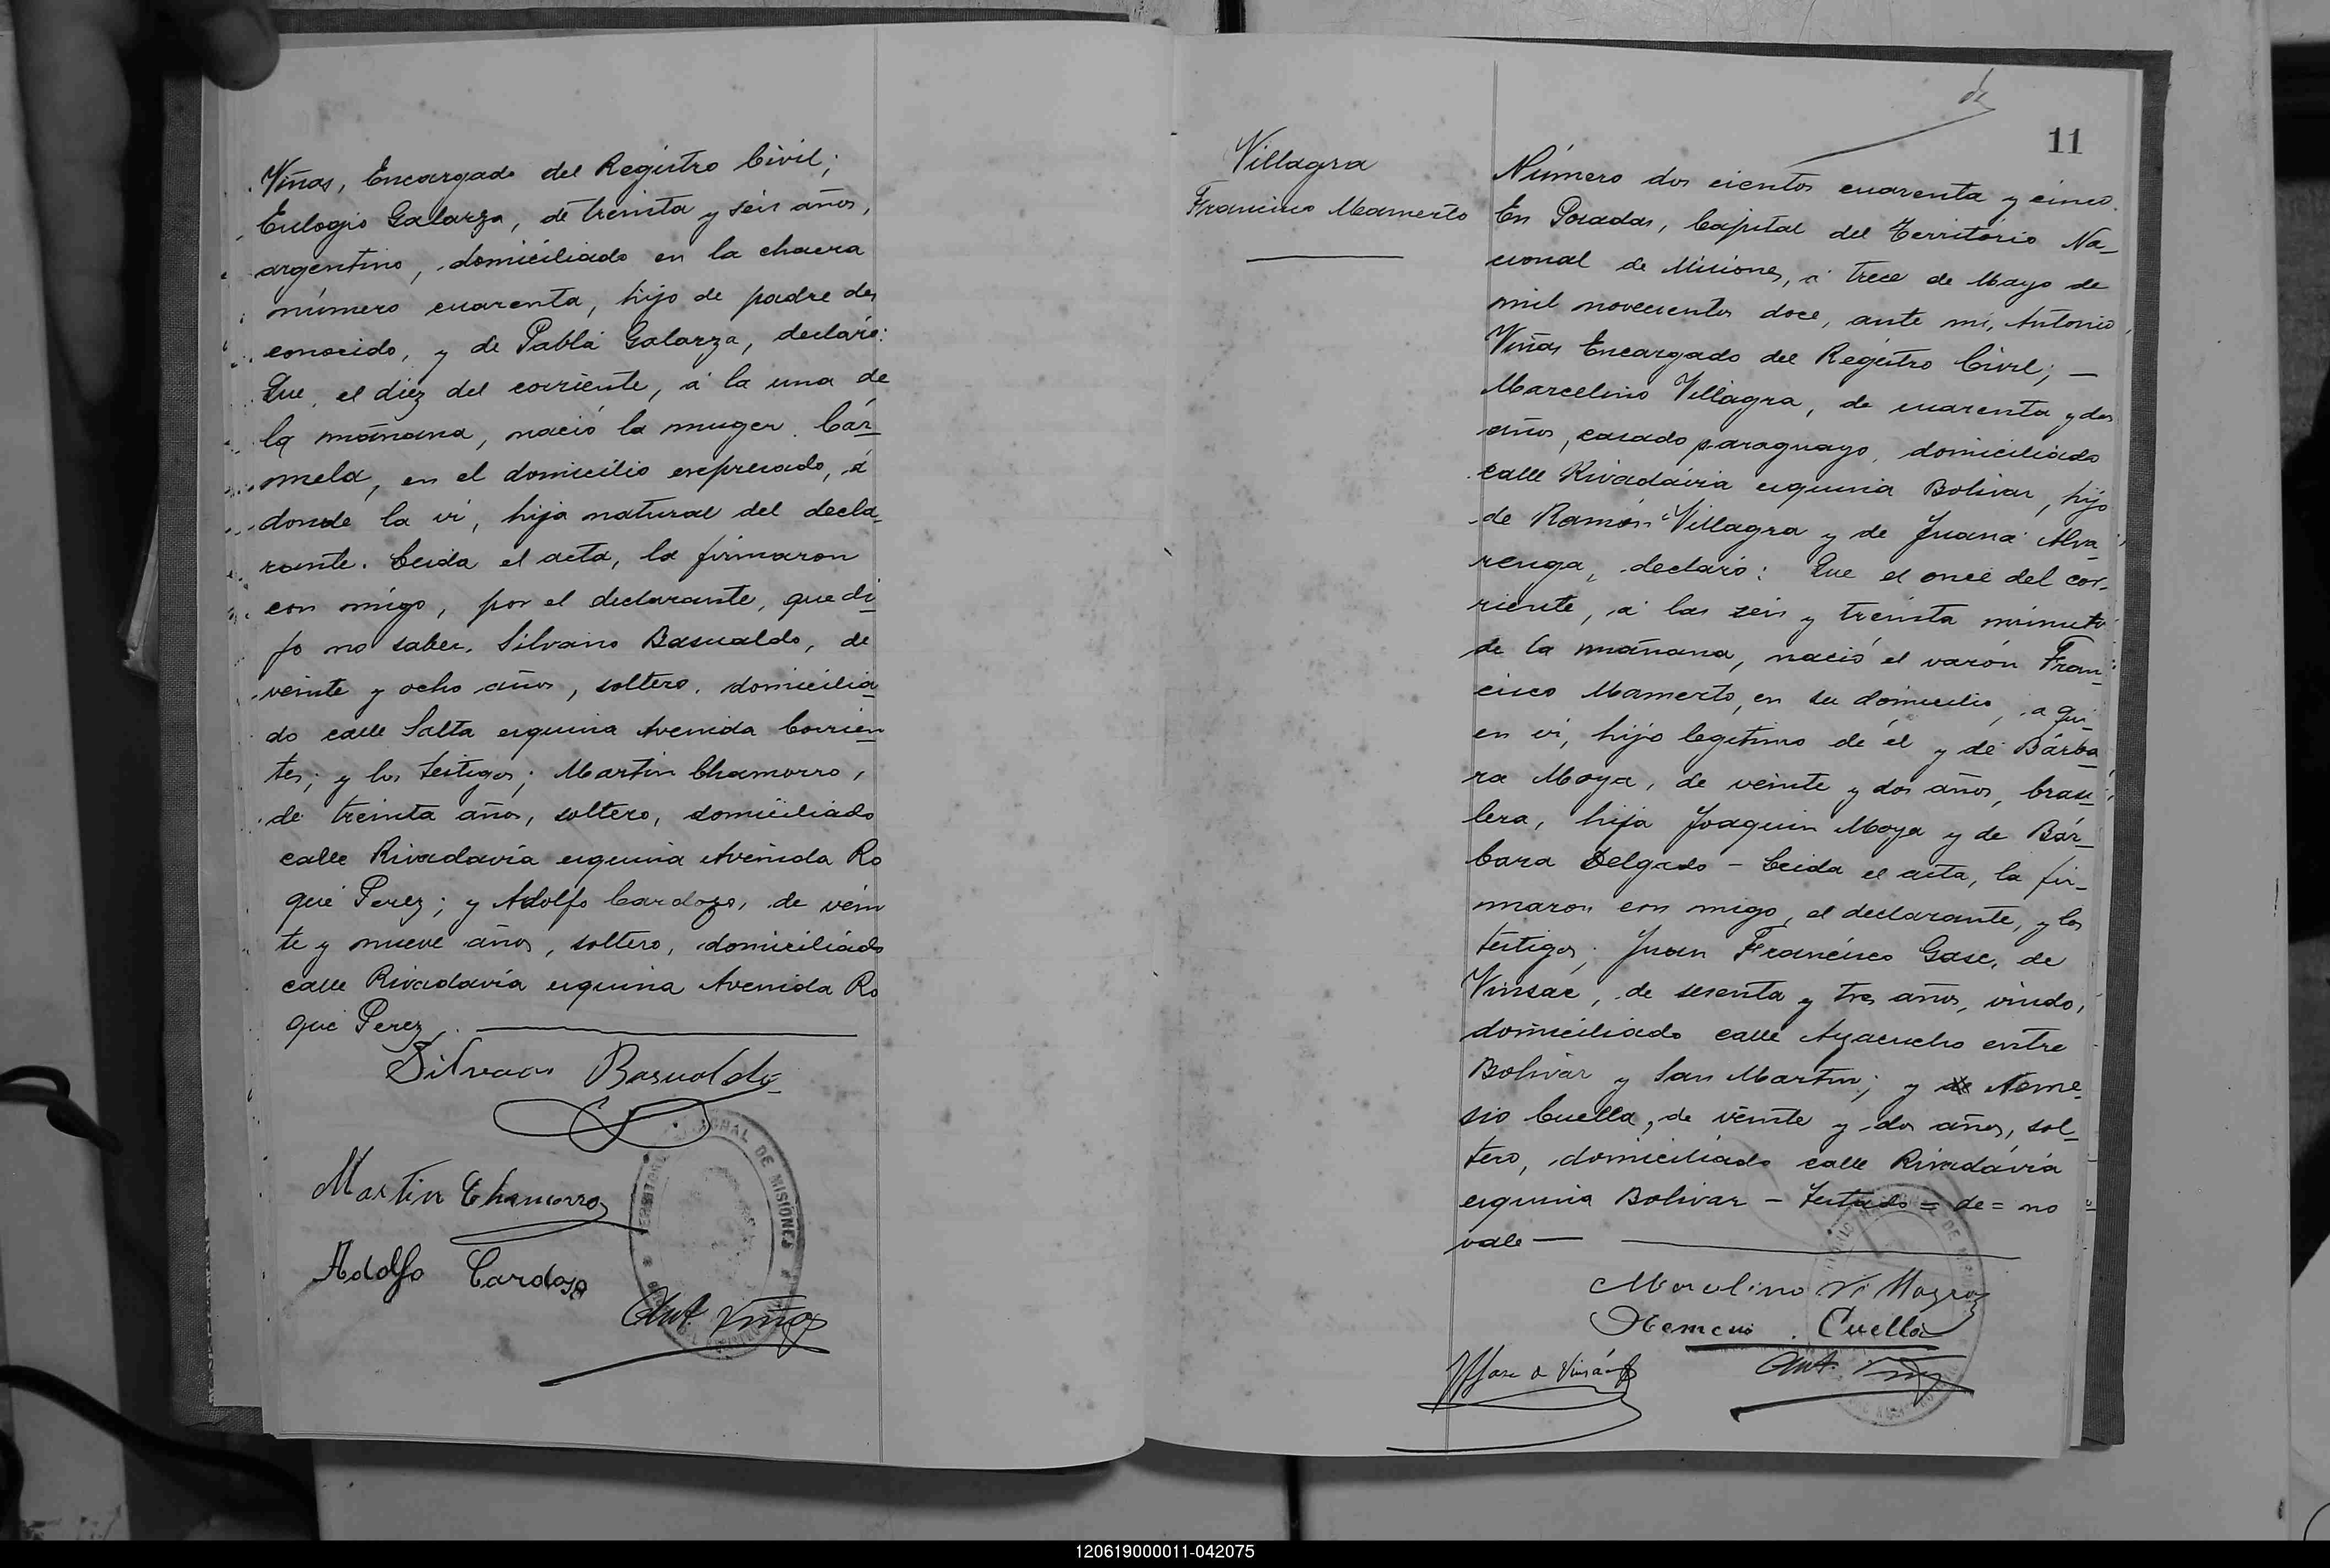 Viñas, Encargado del Registro Civil;
Eulogio Galarza, de treinta y seis años,
argentino, domiciliado en la chacra
número cuarenta, hijo de padre des
conocido, y de Pabla Galarza, declaró:
Que, el diez del corriente, á la una de
la mañana, nació la muger Cár_
mela, en el domicilio expresado, á
donde la vi, hija natural del decla_
rante. Leida el acta, la firmaron
con migo, por el declarante, que di_
jo no saber, Silvano Basualdo, de
veinte y ocho años, soltero, domicilia_
do calle Salta esquina Avenida Corrien_
tes; y los testigos; Martin Chamorro,
de treinta años, soltero, domiciliado
calle Rivadavia esquina Avenida Ro
que Perez; y Adolfo Cardozo, de vein
te y nueve años, soltero, domiciliado
calle Rivadavia esquina Avenida Ro
que Perez.
Silvano Basualdo
Martin Chamorro
Adolfo Cardozo
Ant. Viñas
DE MISIONES
11
Villagra
Francisco Mamerto
Número dos cientos cuarenta y cinco.
En Posadas, Capital del Territorio Na_
cional de Misiones, á trece de Mayo de
mil novecientos doce, ante mí, Antonio
Viñas Encargado del Registro Civil; —
Marcelino Villagra, de cuarenta y dos
años, casado paraguayo, domiciliado
calle Rivadavia esquina Bolivar, hijo
de Ramón Villagra y de Juana Alva_
renga, declaró: Que el once del cor_
riente, á las seis y treinta minutos
de la mañana, nació el varón Fran_
cisco Mamerto, en su domicilio, a qui_
en vi, hijo legitimo de él y de Bárba_
ra Moya, de veinte y dos años, brasi_
lera, hija Joaquin Moya y de Bár_
bara Delgado - Leida el acta, la fir_
maron con migo, el declarante, y los
testigos; Juan Francisco Gasc, de
Vinsac, de sesenta y tres años, viudo,
domiciliado calle Ayacucho entre
Bolivar y San Martin; y de Neme_
sio Cuella, de veinte y dos años, sol_
tero, domiciliado calle Rivadavia
esquina Bolivar - Testado = de = no
vale —
Marcelino Villagra
Nemecio Cuella
Ant. Viñas
120619000011-042075